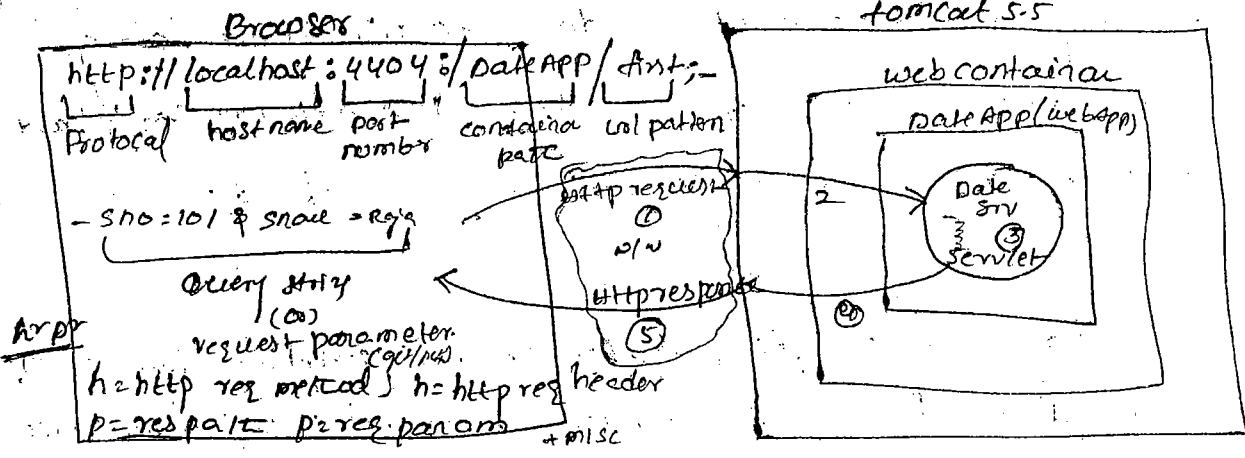 Browser
http://localhost:4404:/DateAPP/first;-
Protocal hostname port number containa path url pattern
- Sno=101 & Sname=Raja
Query string
(or)
request parameter
(get/post)
h=http req method h=http req header
p=res path p=req.param + misc
HTTP request
①
n/w
HTTP response
⑤
tomcat 5.5
web container
Date APP (webAPP)
2
Date
Srv
③
Servlet